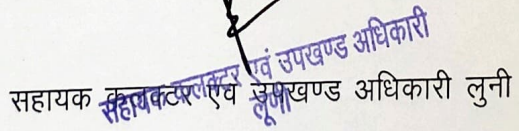 सहायक कलक्टर एवं उपखण्ड अधिकारी
लूणी
सहायक कलक्टर एवं उपखण्ड अधिकारी लुनी